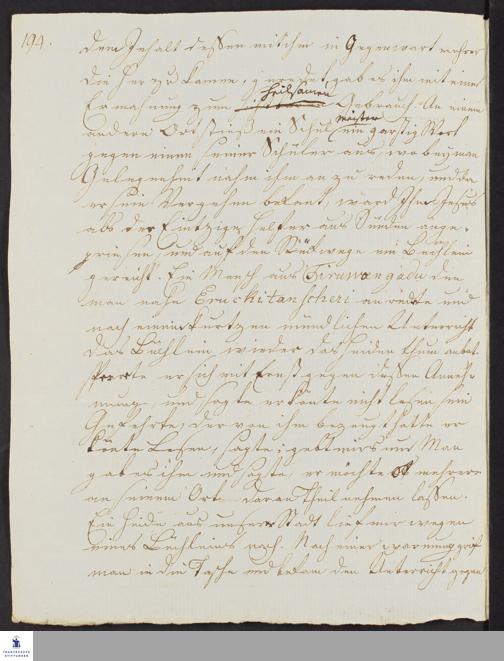 194.
dem Inhalt dessen mit ihm in Gegenwart mehrer
die her zu kamen, geredet, gab es ihm mit einer
Ermahnung zum heilsamen Gebrauch. An einem
andern Ort stieß ein Schulmeister ein garstig Wort
gegen einen seiner Schüler aus, wobey man
Gelegenheit nahm ihn an zu reden, und da
er sein Vergehen bekant, ward Ihm Jesus
als der Eintzige Helfer aus Sünden ange-
priesen, und auf dem Rückwege ein Büchlein
gereicht. Ein Mensch aus Tiruwangadu den
man nahe Eruckitanscheri an redete und
nach einem kurtzen mündlichen Unterricht
das Büchlein wieder das Heidenthum anbot
sperrte er sich mit Ernst gegen dessen Anneh-
mung, und sagte er könte nicht lesen sein
Gefehrte, der von ihm bezeugt hatte er
könte Lesen, sagte; gebt mirs nur. Man
gab es ihm und sagte, er möchte mehrere
an seinem Ort daran Theil nehmen lassen.
Ein Heide aus unserer Stadt lief mir wegen
eines Büchleins nach. Nach einer Warnung grif
man in die Tasche und bekam den Unterricht gegen
FRANCKESCHE STIFTUNGEN